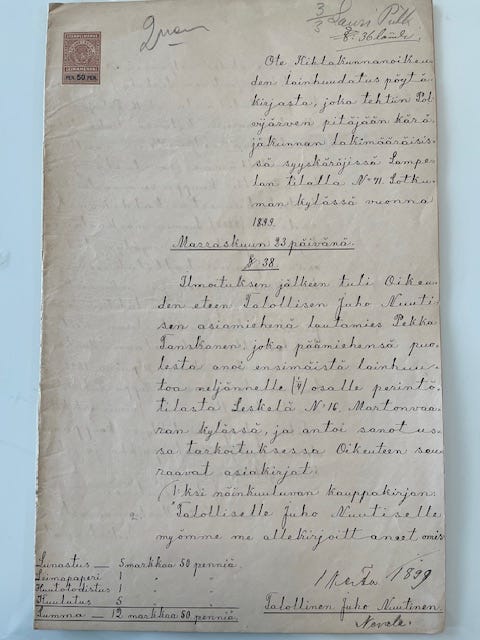 STEMPELMÄRKE
LEIMAMERKKI
PEN. 50 PEN.
3/3 Lauri
§. 36
Ote Kihlakunnanoikeu-
den lainhuudatus pöytä-
kirjasta, joka tehtiin Pol-
vijärven pitäjään kärä-
jäkunnan lakimääräisis-
sä syyskäräjissä Lampe-
lan tilalla No 71 Sotku-
man kylässä vuonna
1899.
Marraskuun 23 päivänä.
§ 38.
Ilmoituksen jälkeen tuli Oikeu-
den eteen Talollisen Juho Nuuti-
sen asiamiehenä lautamies Pekka
Tanskanen, joka päämiehensä puo-
lesta anoi ensimäistä lainhuu-
toa neljännelle /¼/ osalle perintö-
tilasta Leskelä No 16, Martonvaa-
ran kylässä, ja antoi sanotus-
sa tarkoituksessa Oikeuteen seu-
raavat asiakirjat:
1:ksi näinkuuluvan kauppakirjan:
"Talolliselle Juho Nuutiselle
myömme me allekirjoittaneet omis-
2.
Lunastus — 5 markkaa 50 penniä
Leimapaperi 1 " "
Huutotodistus 1 " "
Kuulutus 5 " "
Summa — 12 markkaa 50 penniä.
1 kerta 1899
Talollinen Juho Nuutinen